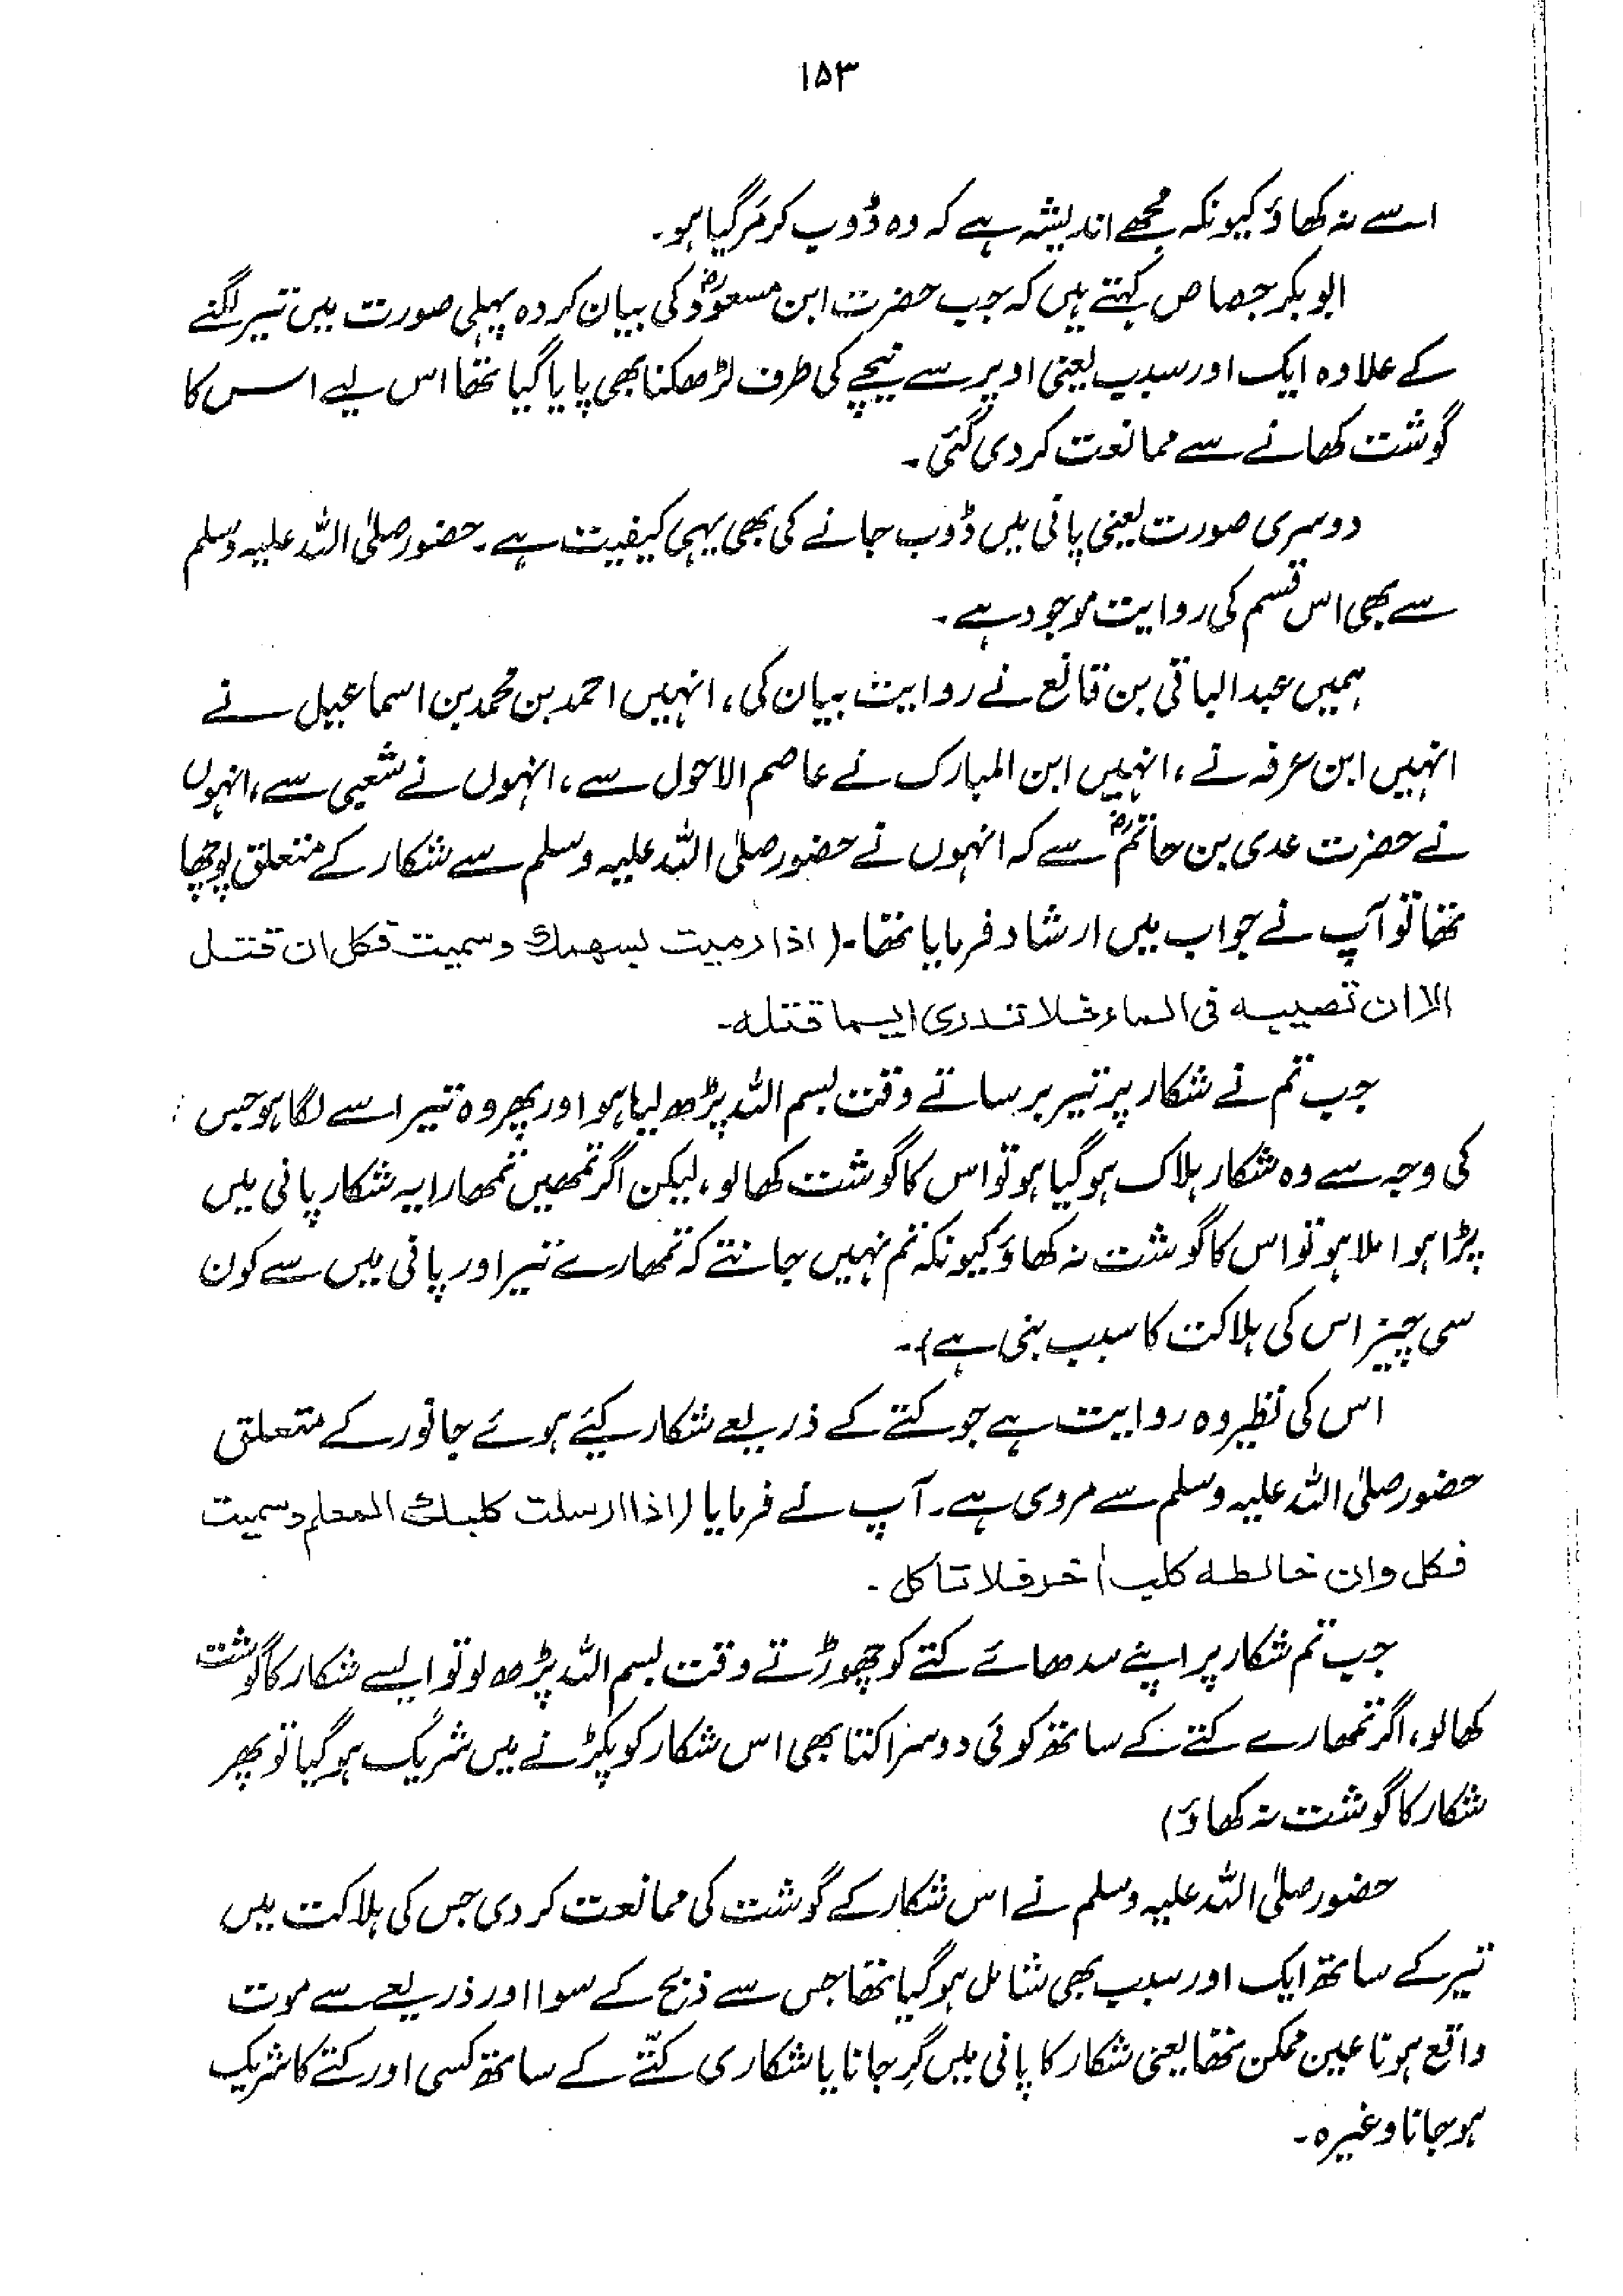 ۱۵۳
اسے نہ کھاؤ کیونکہ مجھے اندیشہ ہے کہ وہ ڈوب کر مَر گیا ہو۔
ابو بکر جصاص کہتے ہیں کہ جب حضرت ابن مسعودؓ کی بیان کردہ پہلی صورت میں تیر لگنے
کے علاوہ ایک اور سبب یعنی اوپر سے نیچے کی طرف لڑھکنا بھی پایا گیا تھا اس لیے اس کا
گوشت کھانے سے ممانعت کر دی گئی۔
دوسری صورت یعنی پانی میں ڈوب جانے کی بھی یہی کیفیت ہے۔ حضور صلی اللہ علیہ وسلم
سے بھی اس قسم کی روایت موجود ہے۔
ہمیں عبد الباقی بن قانع نے روایت بیان کی، انہیں احمد بن محمد بن اسماعیل نے
انہیں ابن عرفہ نے، انہیں ابن المبارک نے عاصم الاحول سے، انہوں نے شعبی سے، انہوں
نے حضرت عدی بن حاتمؓ سے کہ انہوں نے حضور صلی اللہ علیہ وسلم سے شکار کے متعلق پوچھا
تھا تو آپ نے جواب میں ارشاد فرمایا تھا۔ (اذا رمیت بسهمك وسمیت فكل ان قتل
الا ان تصیبه فی الماء فلا تدری ایهما قتله۔
جب تم نے شکار پر تیر برساتے وقت بسم اللہ پڑھ لیا ہو اور پھر وہ تیر اسے لگا ہو جس
کی وجہ سے وہ شکار ہلاک ہو گیا ہو تو اس کا گوشت کھا لو، لیکن اگر تمھیں تمھارا یہ شکار پانی میں
پڑا ہوا ملا ہو تو اس کا گوشت نہ کھاؤ کیونکہ تم نہیں جانتے کہ تمھارے تیر اور پانی میں سے کون
سی چیز اس کی ہلاکت کا سبب بنی ہے)۔
اس کی نظیر وہ روایت ہے جو کتے کے ذریعے شکار کیئے ہوئے جانور کے متعلق
حضور صلی اللہ علیہ وسلم سے مروی ہے۔ آپ نے فرمایا (اذا ارسلت كلبك المعلم وسمیت
فكل وان خالطه كلب اٰخر فلا تاكل۔
جب تم شکار پر اپنے سدھائے کتے کو چھوڑتے وقت بسم اللہ پڑھ لو تو ایسے شکار کا گوشت
کھا لو، اگر تمھارے کتے کے ساتھ کوئی دوسرا کتا بھی اس شکار کو پکڑنے میں شریک ہو گیا تو پھر
شکار کا گوشت نہ کھاؤ)
حضور صلی اللہ علیہ وسلم نے اس شکار کے گوشت کی ممانعت کر دی جس کی ہلاکت میں
تیر کے ساتھ ایک اور سبب بھی شامل ہو گیا تھا جس سے ذبح کے سوا اور ذریعے سے موت
واقع ہونا عین ممکن تھا یعنی شکار کا پانی میں گر جانا یا شکاری کتّے کے ساتھ کسی اور کتے کا شریک
ہو جانا وغیرہ۔